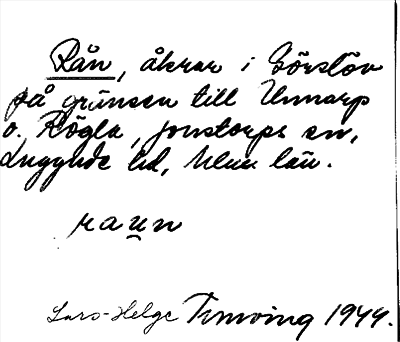 Rån, åkrar i Görslöv
på gränsen till Unnarp
o. Rögla, Jonstorps sn,
Luggude hd, Mlm. län.
raun
Lars-Helge Tunving 1944.